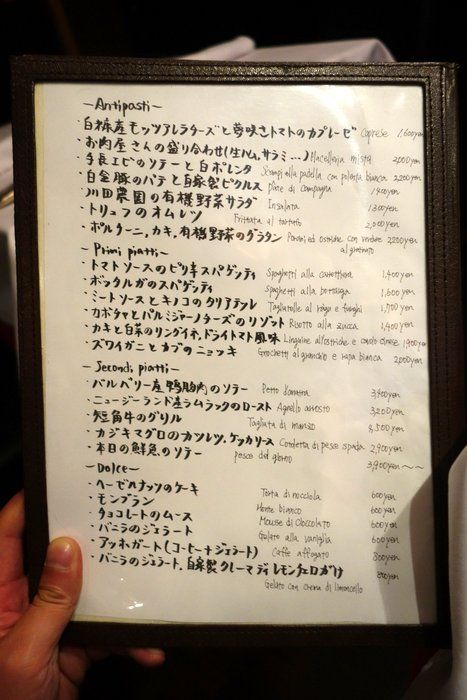 —Antipasti—
・白糠産モッツアレラチーズと夢咲きトマトのカプレーゼ Caprese 1,600yen
・お肉屋さんの盛り合わせ(生ハム,サラミ…) Macelleria mista 2,000yen
・手長エビのソテーと白ポレンタ Scampi alla padella con polenta bianca 2,200yen
・白金豚のパテと自家製ピクルス Pate di Campagna 1,400yen
・川田農園の有機野菜サラダ Insalata 1,300yen
・トリュフのオムレツ Frittata al tartufo 2,000yen
・ポルチーニ,カキ,有機野菜のグラタン Porcini ed ostriche con verdure al gratinato 2,200yen
—Primi piatti—
・トマトソースのピリ辛スパゲッティ Spaghetti alla carrettiera 1,400yen
・ボッタルガのスパゲッティ Spaghetti alla bottarga 1,600yen
・ミートソースとキノコのタリアテッレ Tagliatelle al ragu e funghi 1,700yen
・カボチャとパルミジャーノチーズのリゾット Risotto alla zucca 1,400yen
・カキと白菜のリングイネ,ドライトマト風味 Linguine all'ostriche e cavolo cinese 1,900yen
・ズワイガニとカブのニョッキ Gnocchetti al granchio e rapa bianca 2,000yen
—Secondi piatti—
・バルバリー産鴨胸肉のソテー Petto d'anatra 3,400yen
・ニュージーランド産ラムラックのロースト Agnello arrosto 3,200yen
・短角牛のグリル Tagliata di manzo 3,500yen
・カジキマグロのカツレツ,ケッカソース Cotoletta di pesce spada 2,900yen
・本日の鮮魚のソテー pesce del giorno 3,900yen〜
—Dolce—
・ヘーゼルナッツのケーキ Torta di nocciola 600yen
・モンブラン Monte bianco 600yen
・チョコレートのムース Mousse di Cioccolato 600yen
・バニラのジェラート Gelato alla vaniglia 600yen
・アッフォガート(コーヒー+ジェラート) Caffe affogato 800yen
・バニラのジェラート,自家製クレーマ ディ レモンチェロがけ Gelato con crema di limoncello